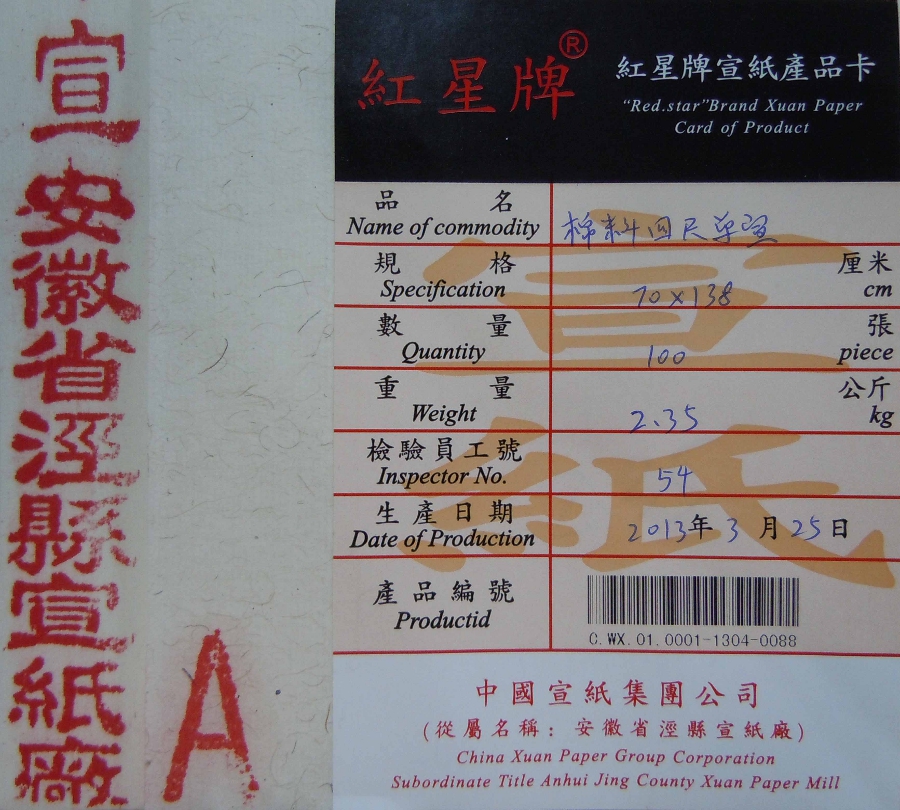 宣
安徽省涇縣宣紙廠
A
紅星牌®
紅星牌宣紙產品卡
“Red.star”Brand Xuan Paper
Card of Product
品名 棉料四尺單宣
Name of commodity
規格 70×138 厘米
Specification cm
數量 100 張
Quantity piece
重量 2.35 公斤
Weight kg
檢驗員工號 54
Inspector No.
生產日期 2013年3月25日
Date of Production
產品編號
Productid
C.WX.01.0001-1304-0088
宣紙
中國宣紙集團公司
(從屬名稱：安徽省涇縣宣紙廠)
China Xuan Paper Group Corporation
Subordinate Title Anhui Jing County Xuan Paper Mill